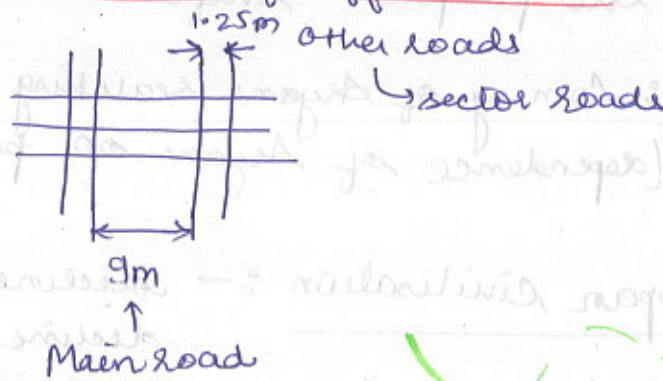 1.25m
Other roads
sector roads
9m
Main road